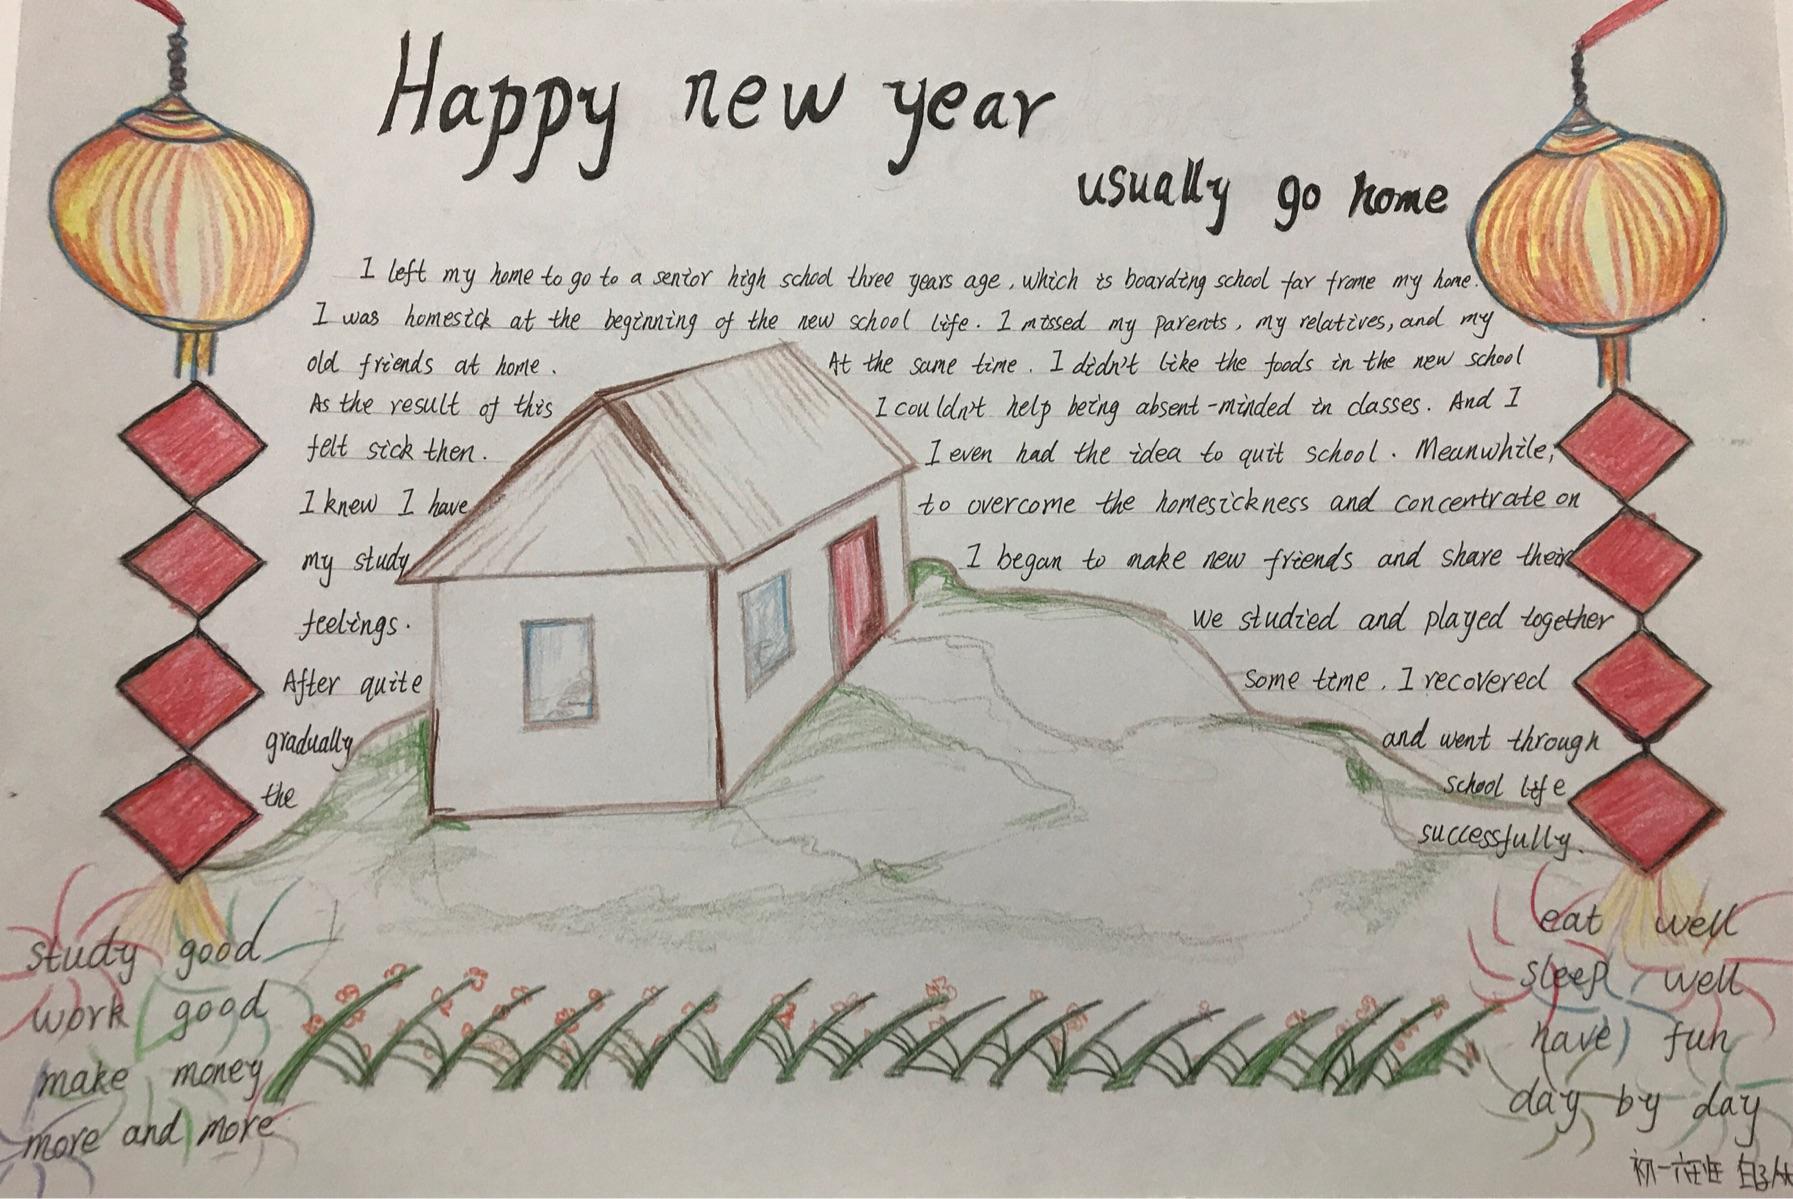 Happy new year
usually go home
I left my home to go to a senior high school three years age, which is boarding school far frome my home.
I was homesick at the beginning of the new school life. I missed my parents, my relatives, and my
old friends at home. At the same time. I didn't like the foods in the new school
As the result of this I couldn't help being absent-minded in classes. And I
felt sick then. I even had the idea to quit school. Meanwhile,
I knew I have to overcome the homesickness and concentrate on
my study I began to make new friends and share their
feelings. We studied and played together
After quite some time. I recovered
gradually and went through
the school life
successfully.
study good
work good
make money
more and more
eat well
sleep well
have fun
day by day
初一